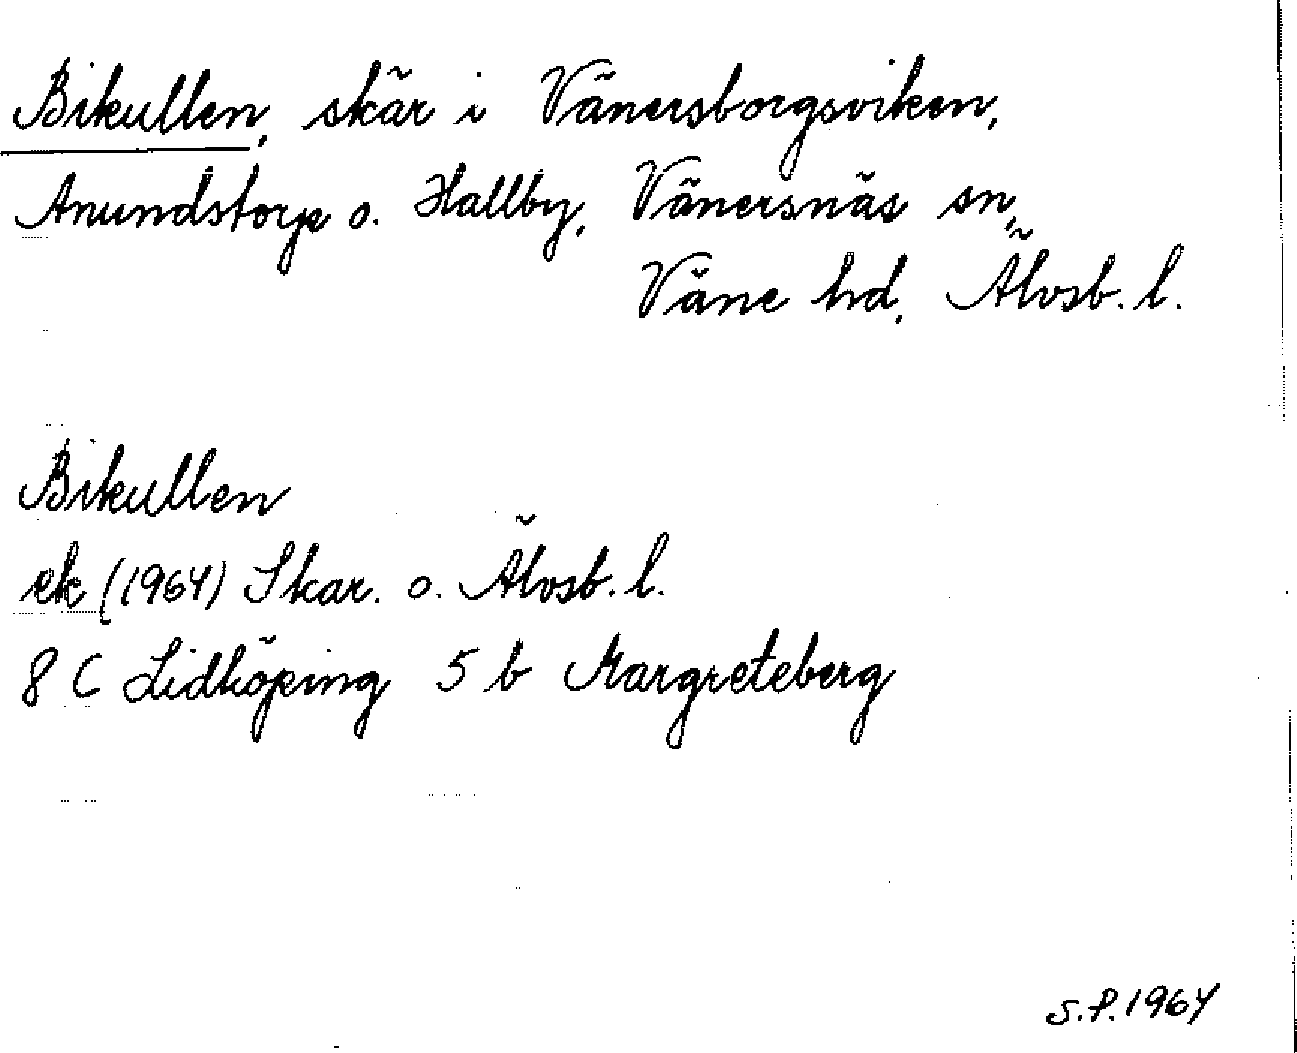 Bikullen, skär i Vänersborgsviken,
Anundstorp o. Hallby, Vänersnäs sn,
Väne hd, Älvsb. l.
Bikullen
ek (1964) Skar. o. Älvsb. l.
8 C Lidköping 5 b Margreteberg
S.P. 1964